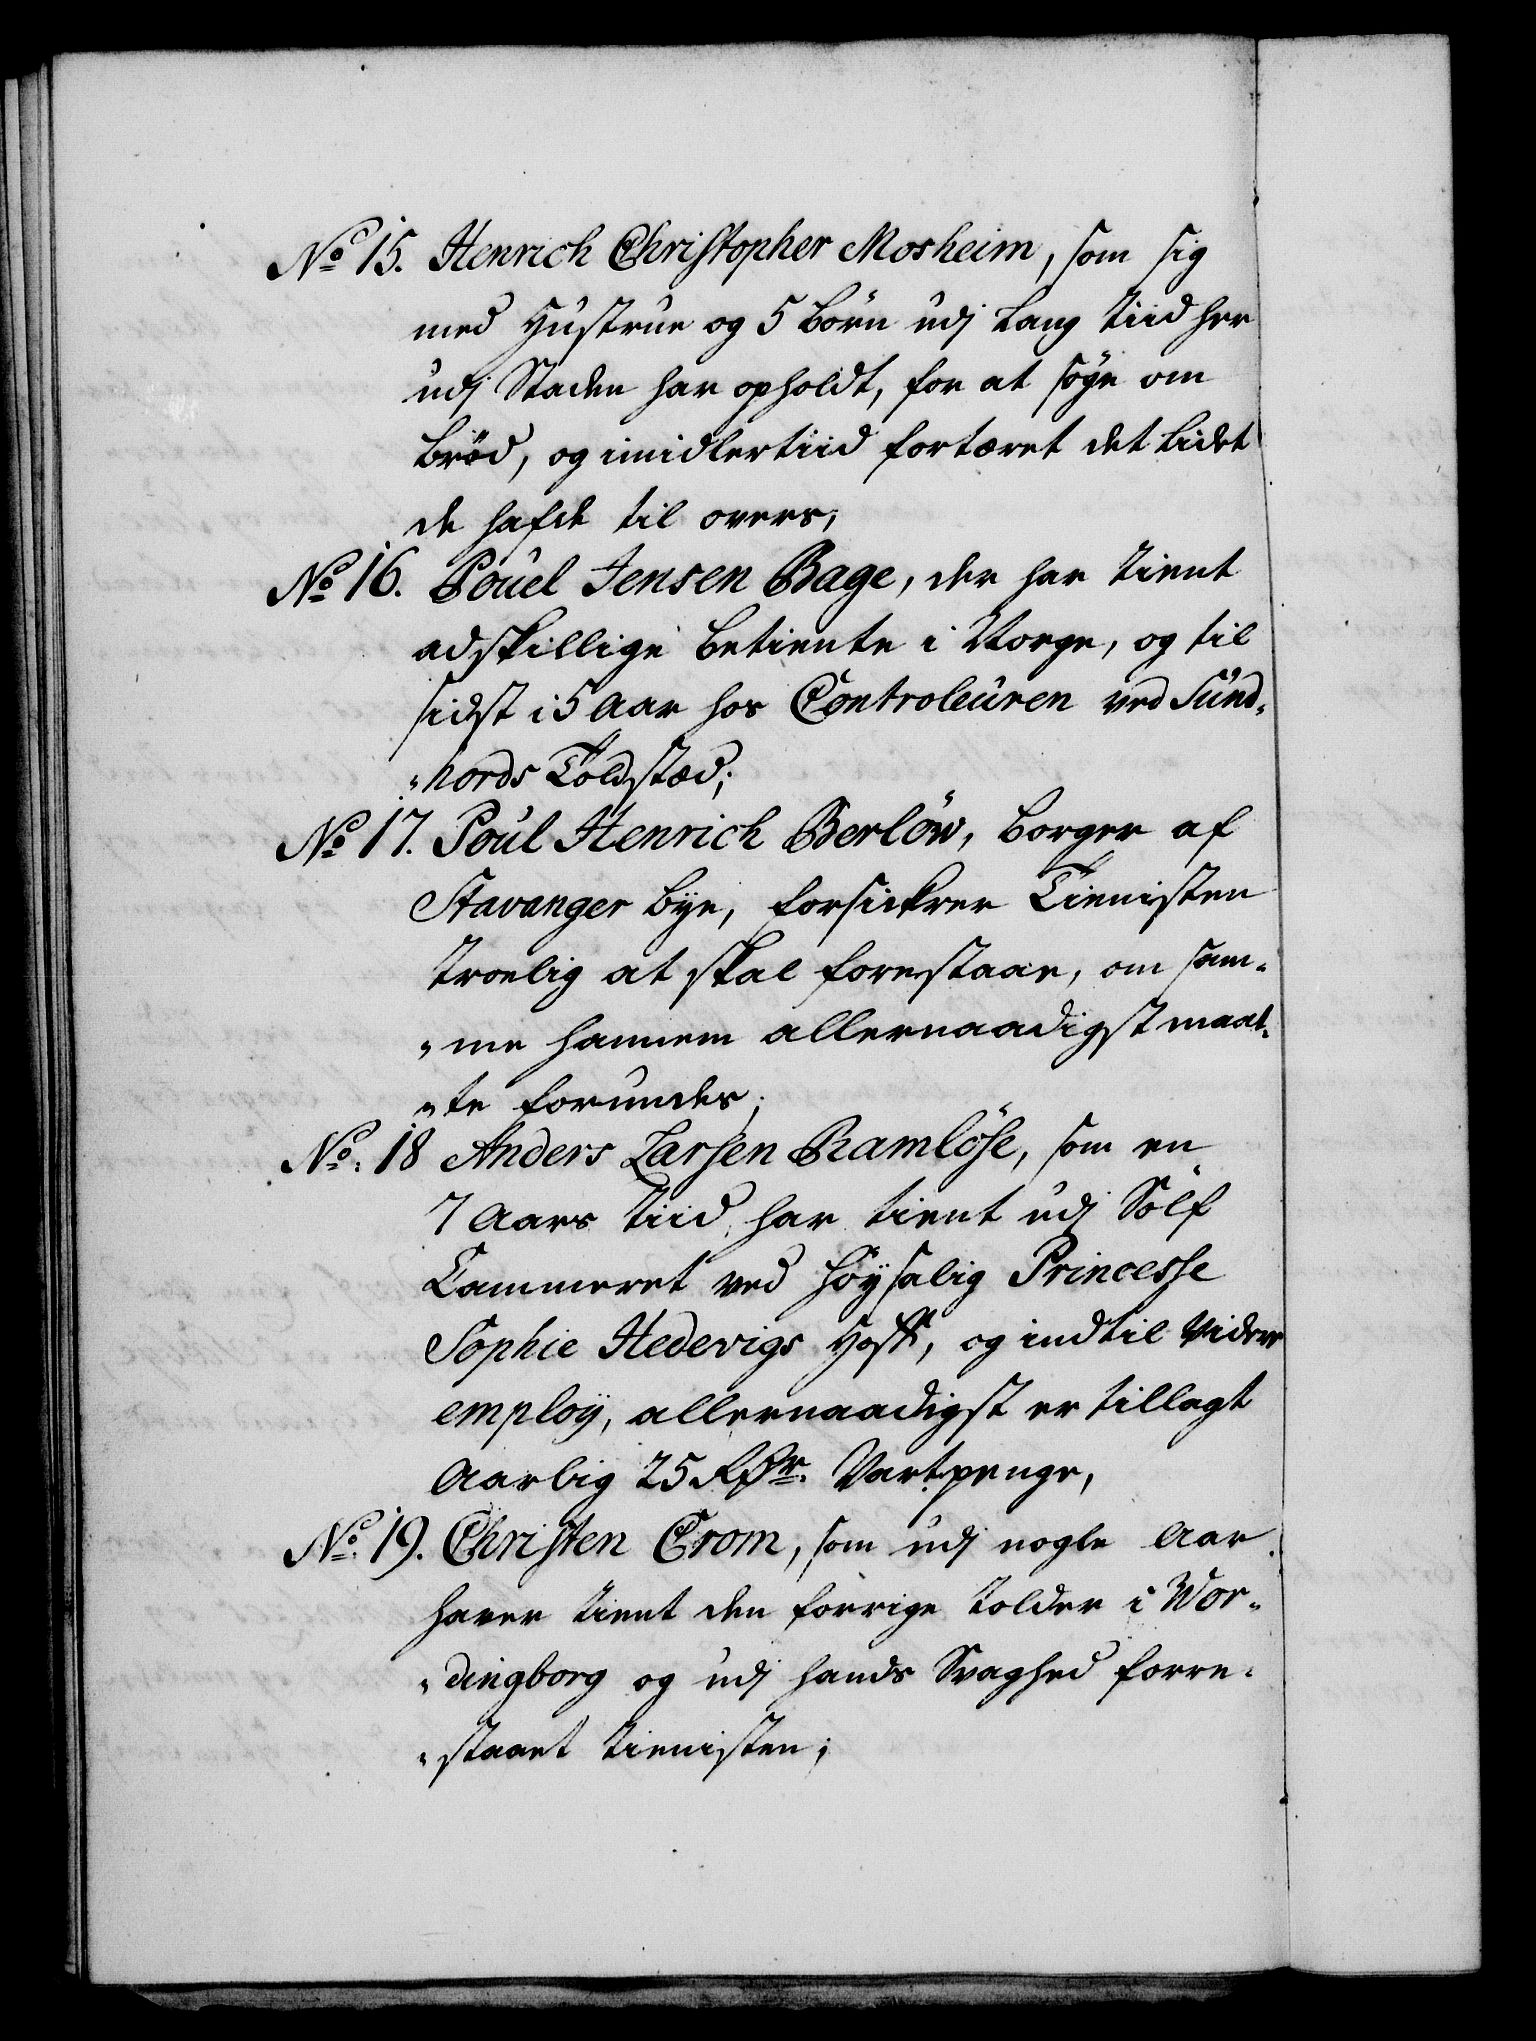 No 15. Henrich Christopher Mosheim, som sig
med Hustrue og 5 Börn udj Lang tiid her
udj Staden har opholdt, for at søge om
Bröd, og imidlertiid fortæret det Lidet
de hafde til overs;
No 16. Pouel Jensen Bage, der har tient
adskillige Betiente i Norge, og til
sidst i 5 Aar hos Controleuren ved Sund„
„hords Toldsted;
No 17. Poul Henrich Berlöw, Borger af
Stavanger bye, forsickrer Tienisten
troelig at skal forestaae, om sam„
„me hannem allernaadigst maat„
„te forundes;
No: 18 Anders Larsen Ramlöse, som en
7 Aars tiid har tient udj Sölf
Cammeret ved Höysalig Princesse
Sophie Hedevigs Hoff, og indtil Videre
employ, allernaadigst er tillagt
Aarlig 25 Rdr. Vartpenge,
No: 19. Christen Crom, som udj nogle Aar
haver tient den forrige Tolder i Wor„
„dingborg og udj hands Svaghed forre„
„staaet tienisten;